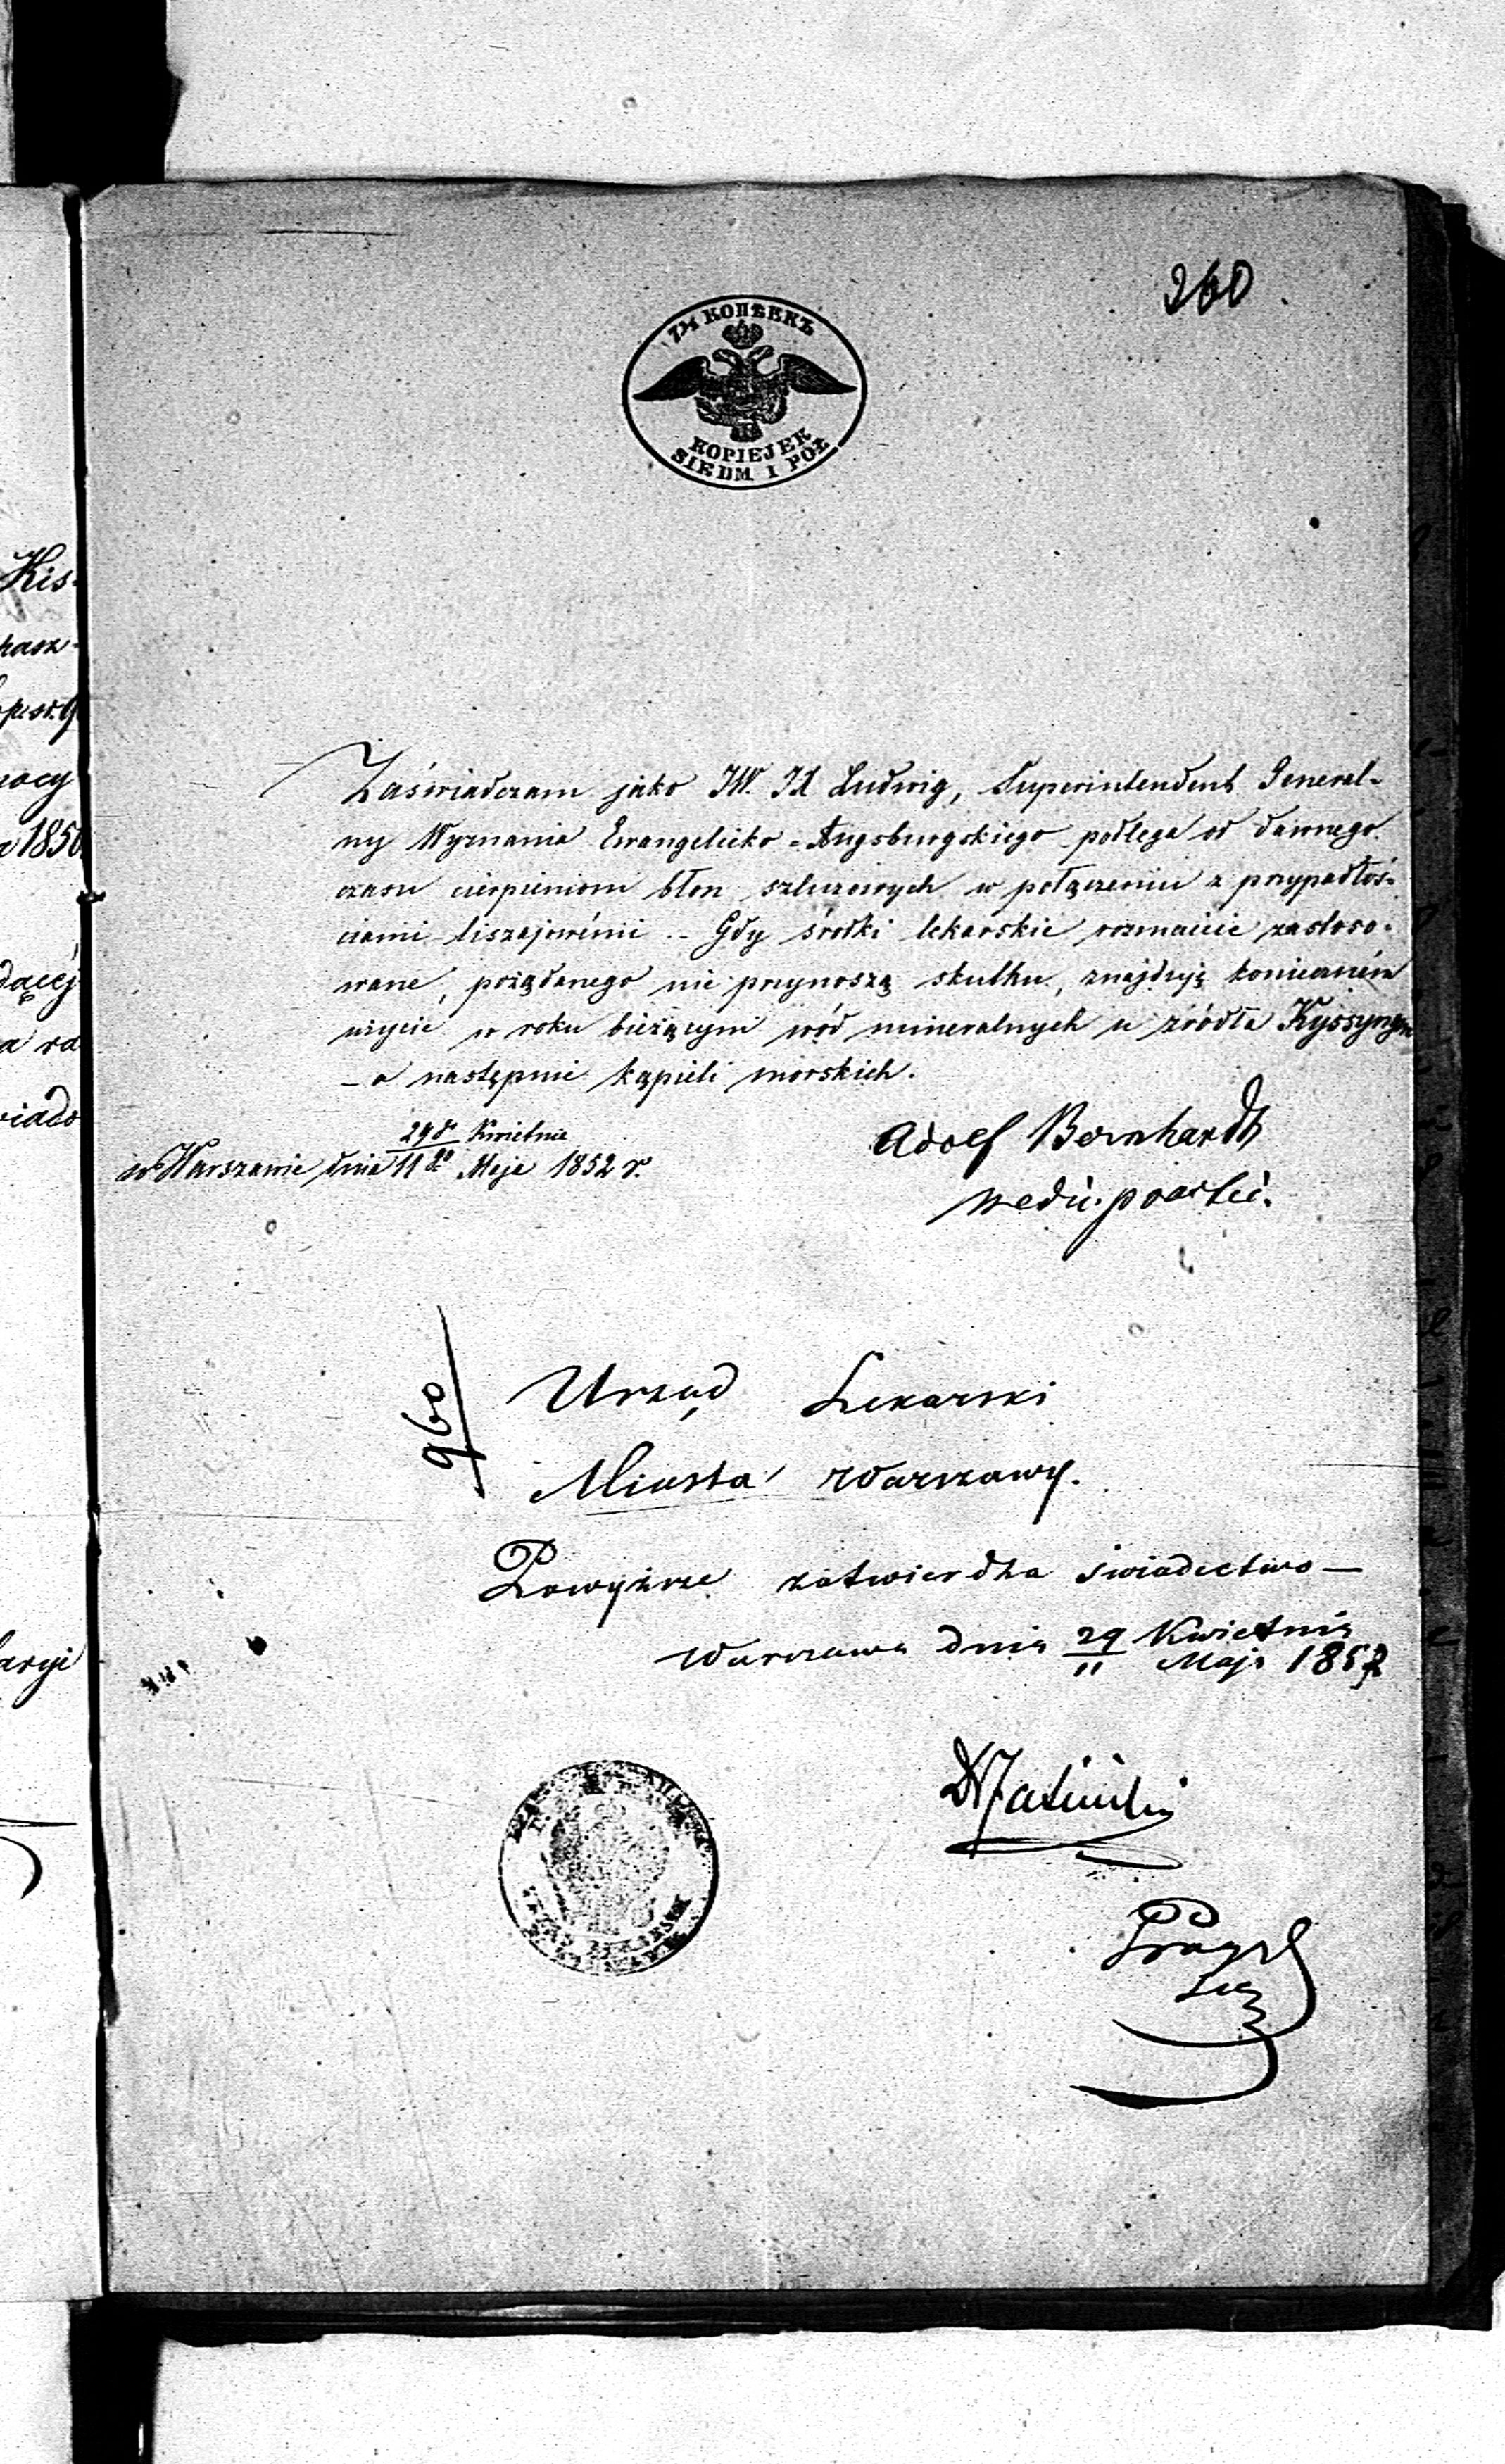 260
7½ КОПѢЕКЪ
KOPIEJEK
SIEDM I PÓŁ
Kis-
pasz-
1850
dącéj
Zaświadczam jako JW. JX Ludwig, Superintendent General-
ny Wyznania Ewangelicko-Augsburgskiego podlega od dawnego
czasu cierpieniom błon szluzowych w połączeniu z przypadłoś-
ciami liszajowémi. - Gdy środki lekarskie rozmaicie zastoso-
wane, pożądanego nie przynoszą skutku, znajduję konieczném
użycie w roku bieżącym wód mineralnych u źródła Kyssyngen
- a następnie kąpieli morskich.
29go Kwietnia
w Warszawie dnia 11go Maja 1852 r.
Adolf Bernhardt
medic. practic.
960
Urząd Lekarski
Miasta Warszawy.
Powyższe zatwierdza świadectwo —
Warszawa dnia 29 Kwietnia
11 Maja 1852